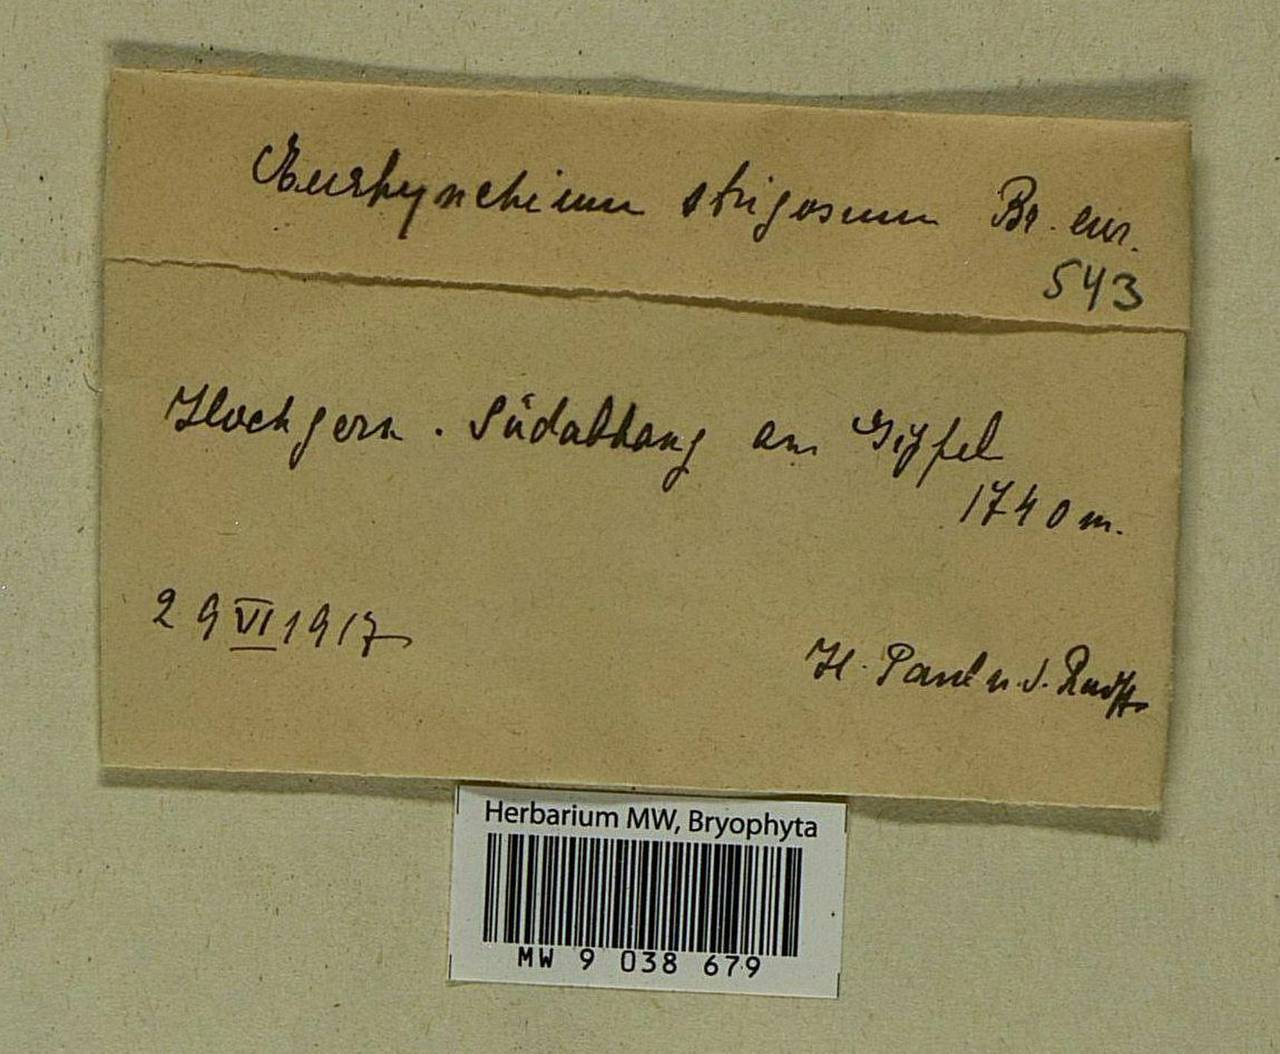 Eurhynchium strigosum Br. eur.
543
Hochgern. Südabhang am Gipfel
1740 m.
29 VI 1917
H. Paul u. v.
Herbarium MW, Bryophyta
MW 9 038 679